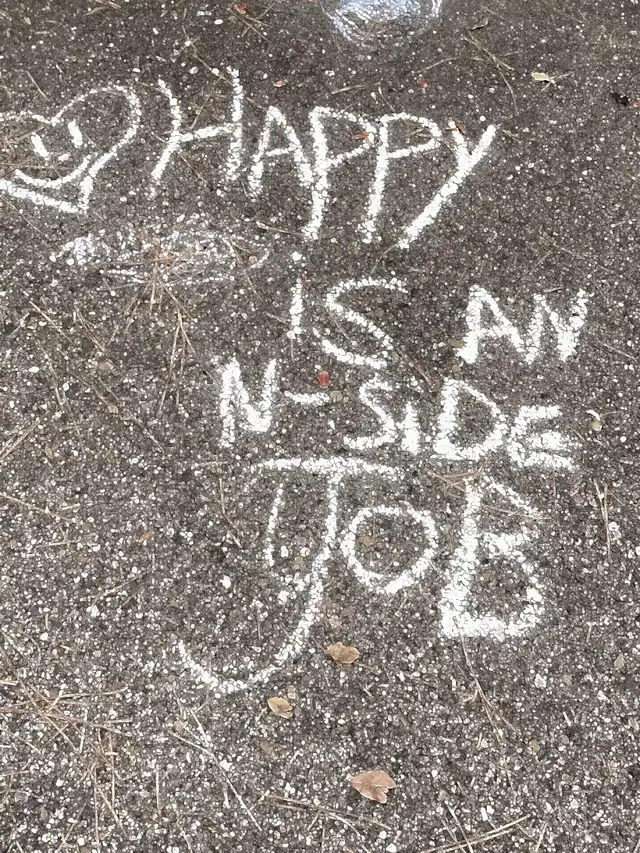 HAPPY
IS AN
N-SIDE
JOB